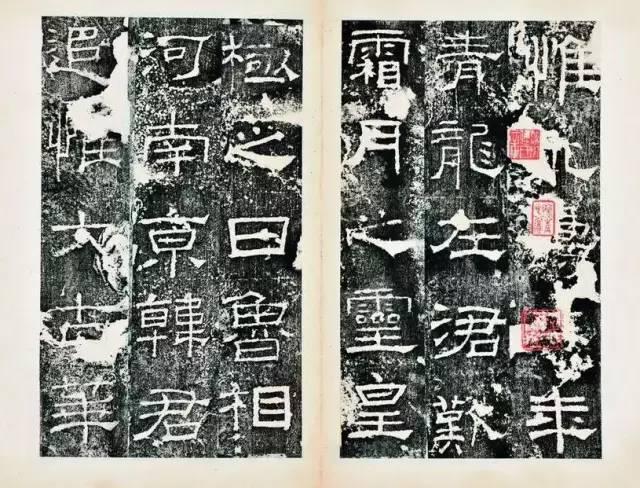 惟永壽年
青龍在涒歎
霜月之靈皇
極之日魯相
河南京韓君
追惟大古華